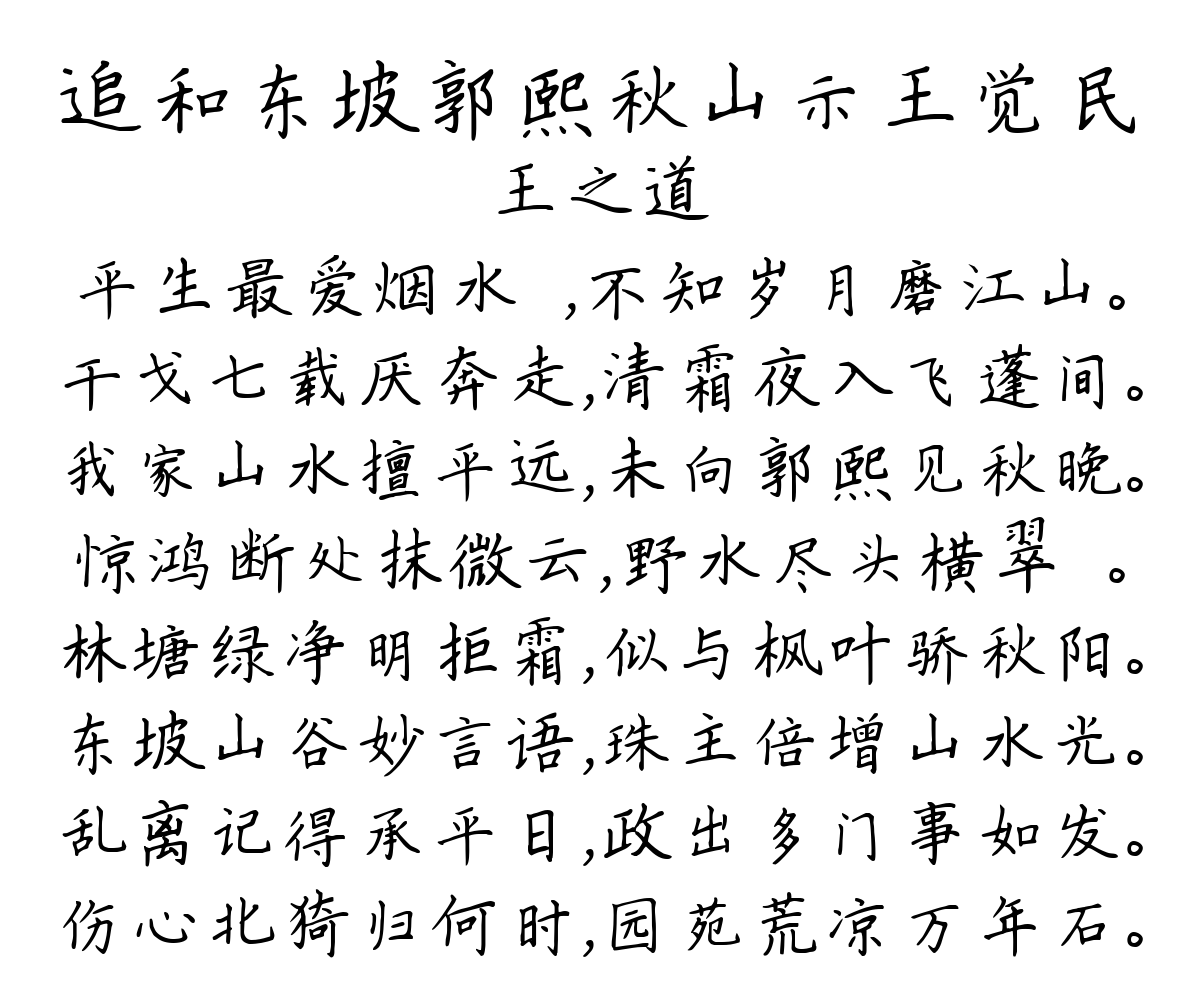 追和东坡郭熙秋山示王觉民
王之道
平生最爱烟水 ,不知岁月磨江山。
干戈七载厌奔走,清霜夜入飞蓬间。
我家山水擅平远,未向郭熙见秋晚。
惊鸿断处抹微云,野水尽头横翠 。
林塘绿净明拒霜,似与枫叶骄秋阳。
东坡山谷妙言语,珠主倍增山水光。
乱离记得承平日,政出多门事如发。
伤心北猗归何时,园苑荒凉万年石。